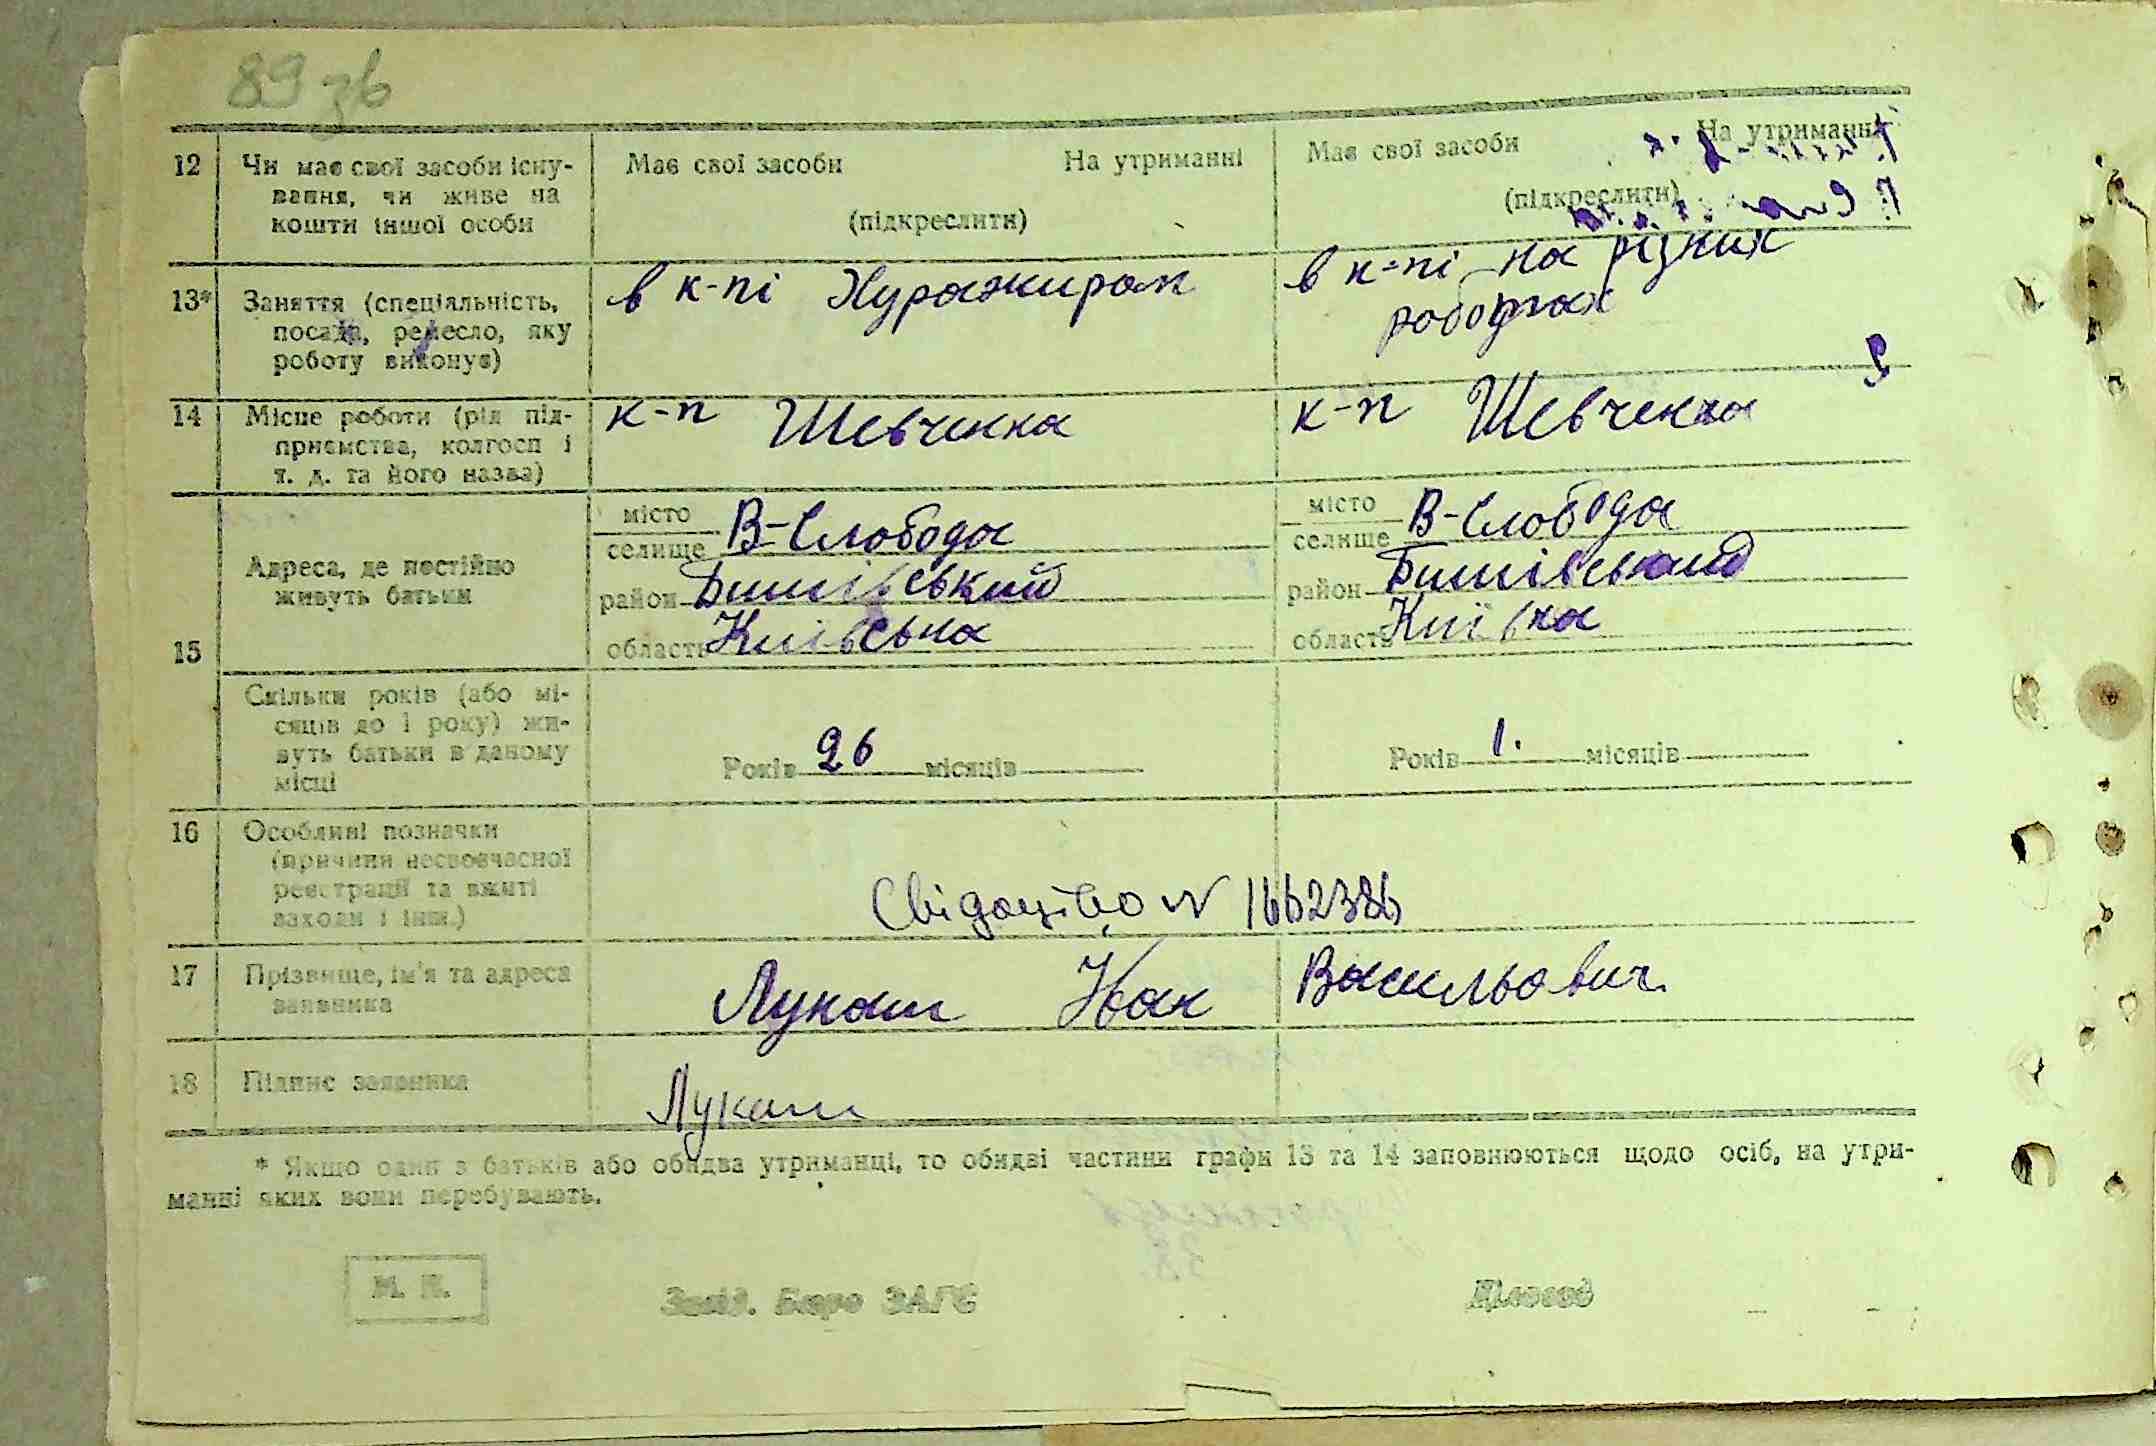 89 зв
12 Чи має свої засоби існу-
вання, чи живе на
кошти іншої особи
Має свої засоби На утриманні
(підкреслити)
Має свої засоби На утриманні
(підкреслити)
13* Заняття (спеціяльність,
посада, ремесло, яку
роботу виконує)
в к-пі Хуражиром
в к-пі на різних
роботах
14 Місце роботи (рід під-
приємства, колгосп і
т. д. та його назва)
к-п Шевченка
к-п Шевченка
15
Адреса, де постійно
живуть батьки
місто
селище В-Слобода
район Бишівський
область Київська
місто
селище В-Слобода
район Бишівський
область Київка
Скільки років (або мі-
сяців до 1 року) жи-
вуть батьки в даному
місці
Років 26 місяців
Років 1. місяців
16 Особливі позначки
(причини несвоєчасної
реєстрації та вжиті
заходи і інш.)
Свідоцтво N 1662386
17 Прізвище, ім'я та адреса
заявника
Лукаш Іван Васильович
18 Підпис заявника
Лукаш
* Якщо один з батьків або обидва утриманці, то обидві частини графи 13 та 14 заповнюються щодо осіб, на утри-
манні яких вони перебувають.
М. П. Зав. Бюро ЗАГС Діловод